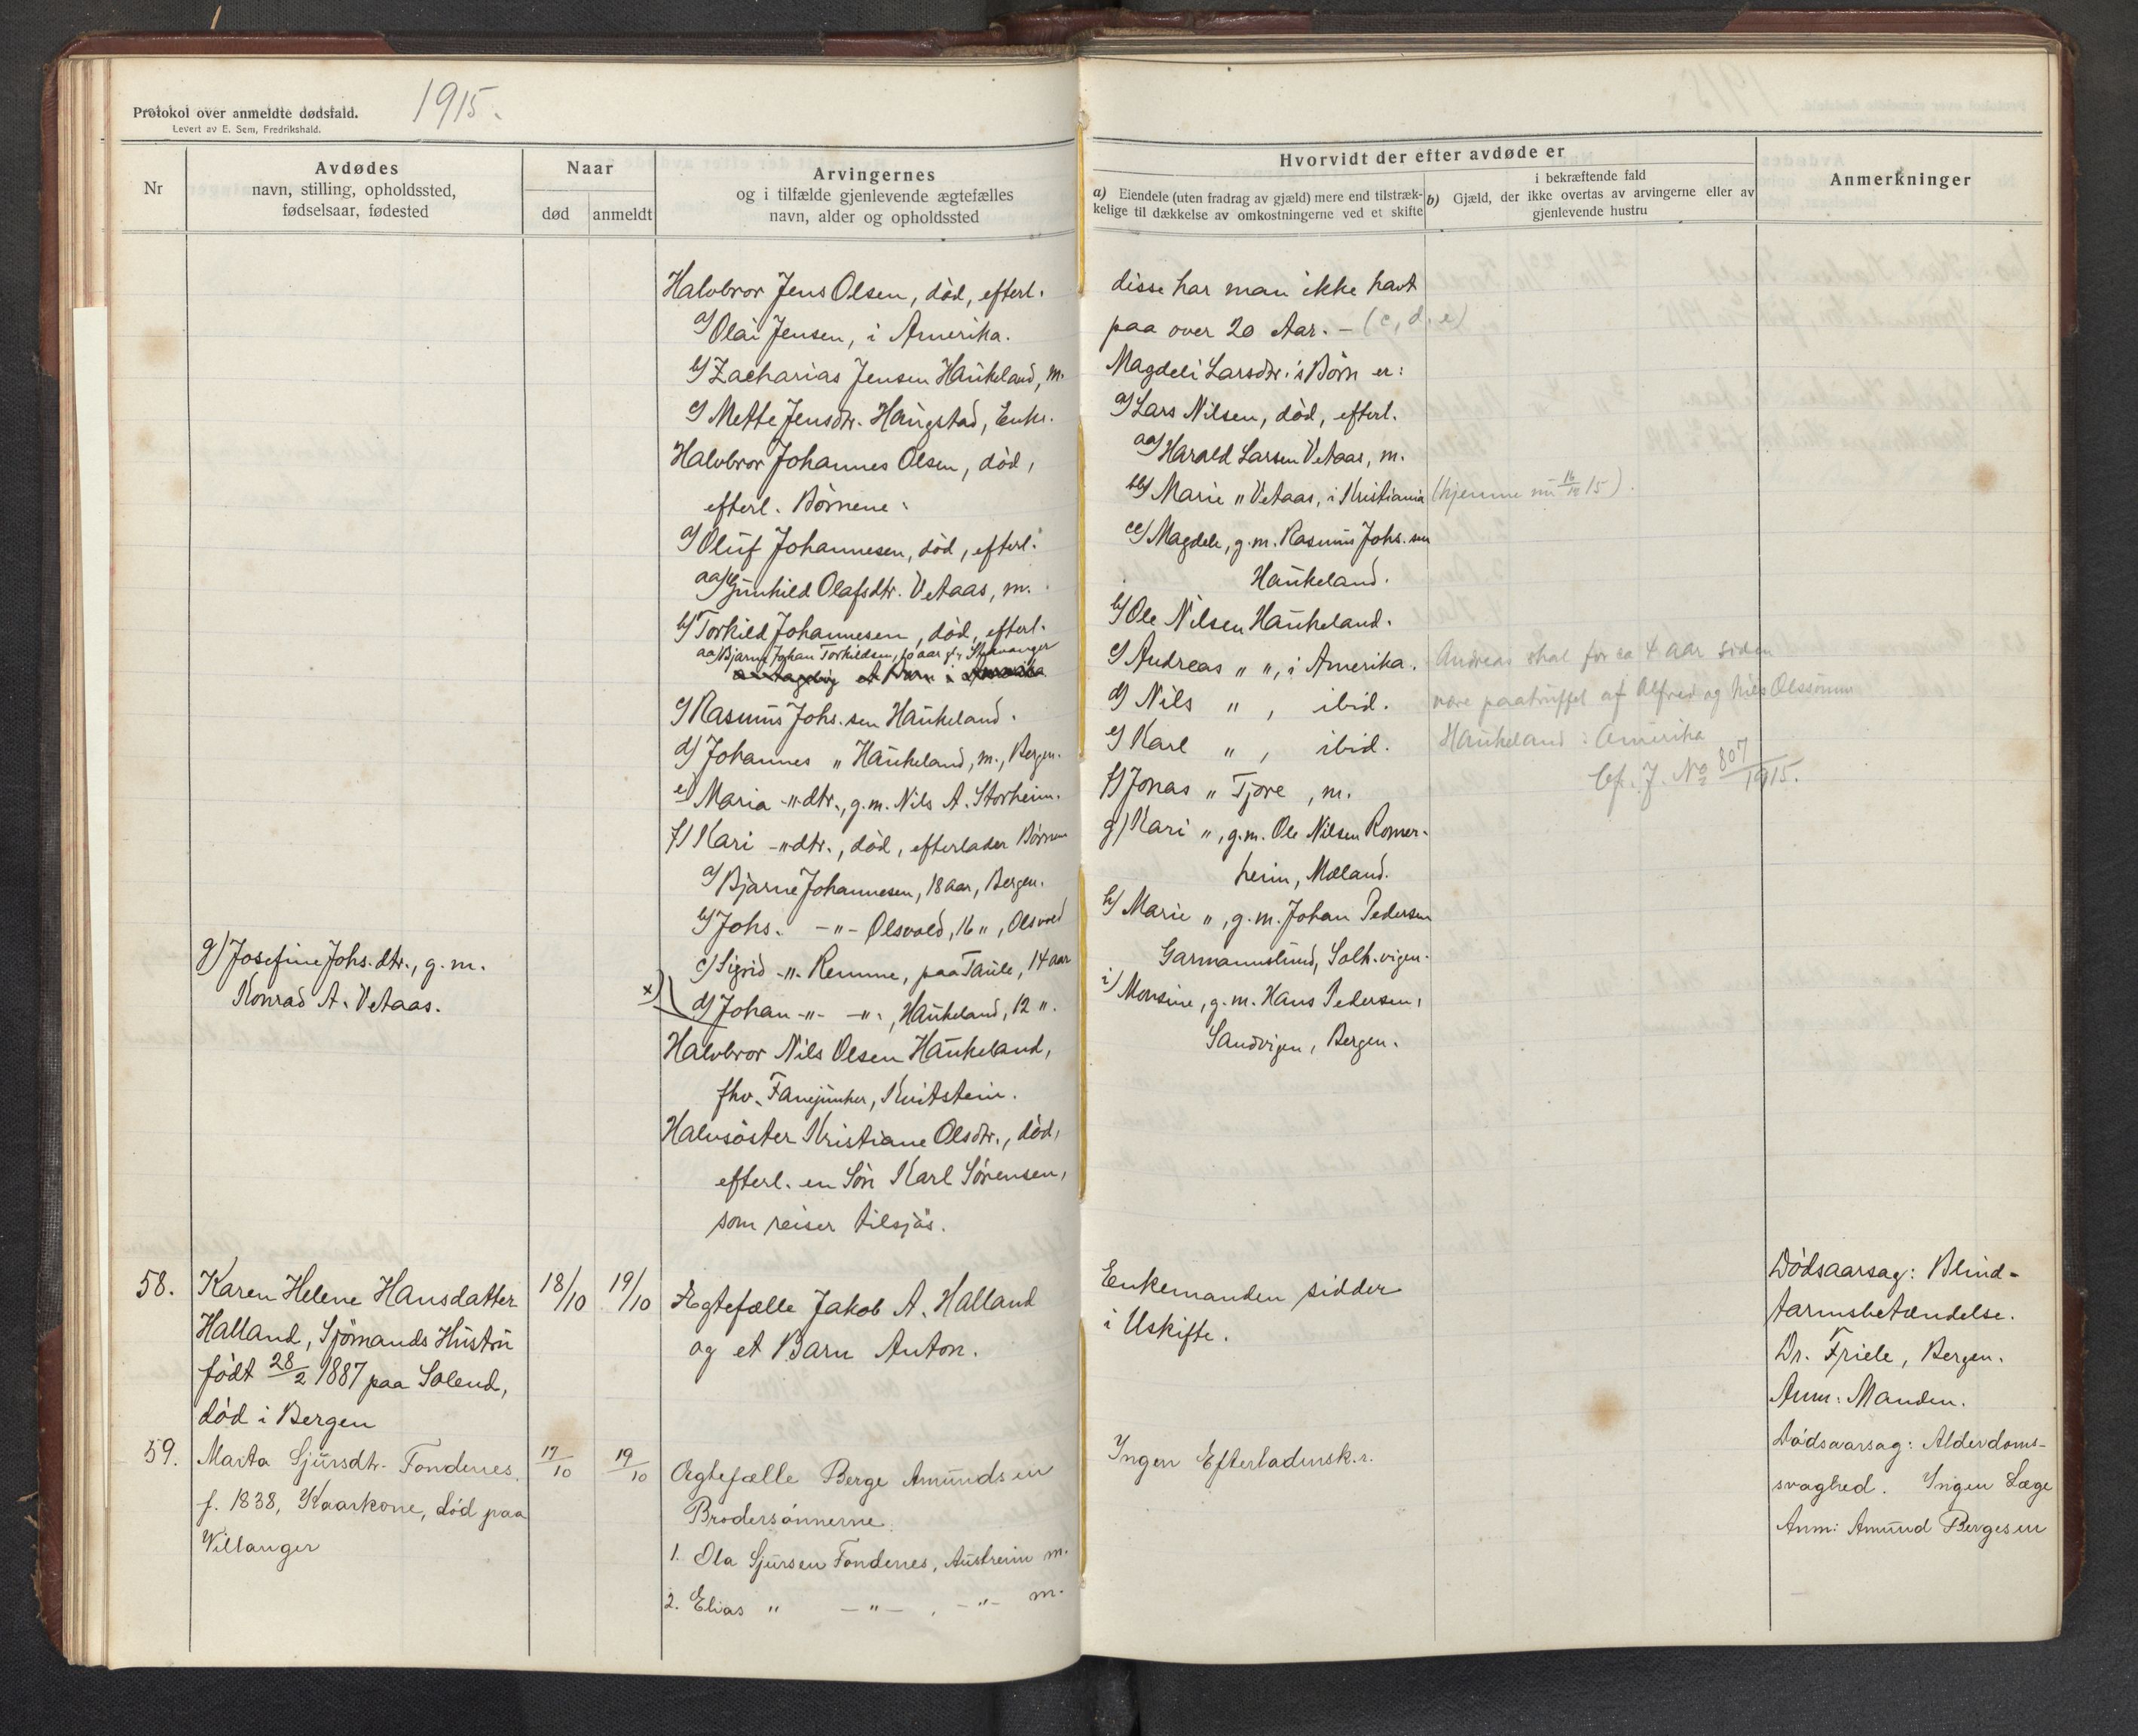 Protokol over anmeldte dødsfald.
Levert av E. Sem, Fredrikshald.
1915.
Nr
Avdødes
navn, stilling, opholdssted,
fødselsaar, fødested
Naar
død
anmeldt
Arvingernes
og i tilfælde gjenlevende ægtefælles
navn, alder og opholdssted
Hvorvidt der efter avdøde er
a) Eiendele (uten fradrag av gjæld) mere end tilstræk-
kelige til dækkelse av omkostningerne ved et skifte
i bekræftende fald
b) Gjæld, der ikke overtas av arvingerne eller av
gjenlevende hustru
Anmerkninger
Halvbror Jens Olsen, død, efterl.
a) Olai Jensen, i Amerika.
b) Zacharias Jensen Haukeland, m.
c) Mette Jensdtr. Haugstad, Enke.
Halvbror Johannes Olsen, død,
efterl. Børnene:
a) Oluf Johannesen, død, efterl.
aa) Gunhild Olafsdtr. Vetaas, m.
b) Torkild Johannesen, død, efterl.
aa) Bjarne Johan Torkildsen, 10 aar, Stavanger
c) Rasmus Johs.sen Haukeland.
d) Johannes " Haukeland, m., Bergen.
e) Maria -"-dtr., g.m. Nils A. Storheim.
f) Kari -"-dtr., død, efterlader Børnene
a) Bjarne Johannesen, 18 aar, Bergen.
b) Johs. -"- Olsvold, 16 ", Olsvold
c) Sigrid -"- Remme, paa Taule, 14 aar
x) d) Johan -"- -"-, Haukeland, 12 ".
g) Josefine Johs.dtr., g.m.
Konrad A. Vetaas.
Halvbror Nils Olsen Haukeland,
fhv. Fanejunker, Kvitstein.
Halvsøster Kristiane Olsdtr., død,
efterl. en Søn Karl Sørensen,
som reiser tilsjøs.
disse har man ikke havt
paa over 20 Aar. - (c, d, e)
Magdeli Larsdtr.'s Børn er:
a) Lars Nilsen, død, efterl.
aa) Harald Larsen Vetaas, m.
bb) Marie " Vetaas, i Kristiania (hjemme nu 16/12 15).
cc) Magdele, g.m. Rasmus Johs.sen
Haukeland.
b) Ole Nilsen Haukeland.
c) Andreas " ", i Amerika. Andreas skal for ca 4 aar siden
d) Nils ", ibid. være paatruffet af Alfred og Nils Olssønner
e) Karl ", ibid. Haukeland i Amerika
cf. J. No 807/1915.
f) Jonas " Tjore, m.
g) Kari ", g.m. Ole Nilsen Romar-
heim, Mæland.
h) Marie ", g.m. Johan Pedersen
Garmannslund, Solh.vigen.
i) Monsine, g.m. Hans Pedersen,
Sandvigen, Bergen.
58.
Karen Helene Hansdatter
Halland, Sjømands Hustru
født 28/2 1887 paa Solend,
død i Bergen
18/10
19/10
Ægtefælle Jakob A. Halland
og et Barn Anton.
Enkemanden sidder
i Uskifte.
Dødsaarsag: Blind-
tarmsbetændelse.
Dr. Friele, Bergen.
Anm: Manden.
59.
Marta Sjursdtr. Fondenes
f. 1838, Kaarkone, død paa
Villanger
17/10
19/10
Ægtefælle Berge Amundsen
Brodersønnerne
1. Ola Sjursen Fondenes, Austreim m.
2. Elias " -"-, -"- m.
Ingen Efterladensk.r.
Dødsaarsag: Alderdoms-
svaghed. Ingen Læge
Anm: Amund Bergesen